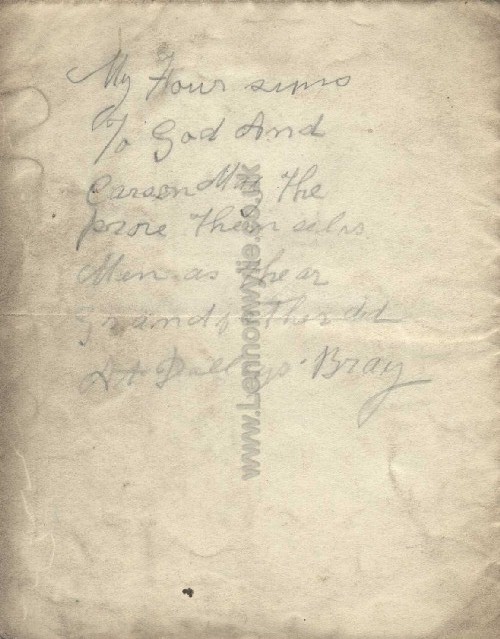 My Four suns
To God And
Carson May The
prove Them selvs
Men as hear
Grand father did
At Dolleys Bray
www.Lennonwylie.co.uk